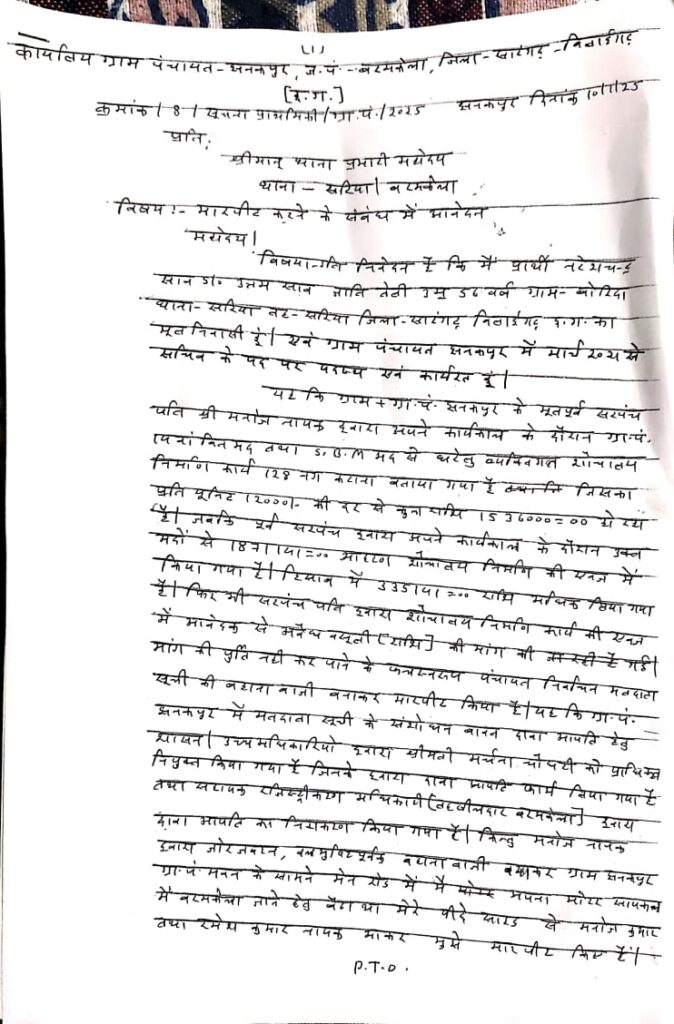 (1)
कार्यालय ग्राम पंचायत - झनकपुर, ज.पं. - बरमकेला, जिला - सारंगढ़ - बिलाईगढ़
[छ.ग.]
क्रमांक / 8 / सूचना प्राथमिकी / ग्रा.पं. / 2025 झनकपुर दिनांक 10/1/25
प्रति,
श्रीमान् थाना प्रभारी महोदय
थाना - सरिया / बरमकेला
विषय :- मारपीट करने के संबंध में आवेदन
महोदय।
निवेदन है कि मैं प्रार्थी
साव उत्तम साव जाति तेली उम्र 56 वर्ष ग्राम - बोरिदा
थाना - सरिया तह - सरिया जिला - सारंगढ़ बिलाईगढ़ छ.ग. का
मूल निवासी हूं। एवं ग्राम पंचायत झनकपुर में मार्च से
सचिव के पद पर पदस्थ एवं कार्यरत हूं।
यह कि ग्राम + ग्रा.पं. झनकपुर के भूतपूर्व सरपंच
पति श्री मनोज नायक द्वारा अपने कार्यकाल के दौरान ग्रा.पं.
मद तथा S.B.M मद से घरेलु व्यक्तिगत शौचालय
निर्माण कार्य 128 नग कराना बताया गया है जिसका
प्रति यूनिट 12000/- की दर से कुल राशि 1536000=00 हो रहा
है। जबकि पूर्व सरपंच द्वारा अपने कार्यकाल के दौरान उक्त
मदों से शौचालय निर्माण की एवज में
किया गया है। हिसाब में राशि अधिक लिया गया
है। फिर भी सरपंच पति द्वारा शौचालय निर्माण कार्य की एवज
में आवेदक से अवैध वसूली (राशि) की मांग की जा रही है
मांग की पुर्ति नही कर पाने के फलस्वरूप पंचायत निर्वाचन मतदाता
सूची की बहाना बाजी बनाकर मारपीट किया है। यह कि ग्रा.पं.
झनकपुर में मतदाता सूची के संशोधन दावा आपति हेतु
शासन / उच्च अधिकारियो द्वारा श्रीमती अर्चना चौधरी को प्राधिकृत
नियुक्त किया गया है जिनके द्वारा दावा आपति फार्म लिया गया है
तथा सहायक रजिस्ट्रीकरण अधिकारी (तहसीलदार बरमकेला) द्वारा
दावा आपति का निराकरण किया गया है। किन्तु मनोज नायक
द्वारा बहाना बाजी बनाकर ग्राम झनकपुर
ग्रा.पं. भवन के सामने मेन रोड में मैं अपना मोटर सायकल
में बरमकेला जाने हेतु बैठा था मेरे पीछे साइड से मनोज कुमार
तथा रमेश कुमार नायक आकर मुझे मारपीट किए हैं।
P.T.O.